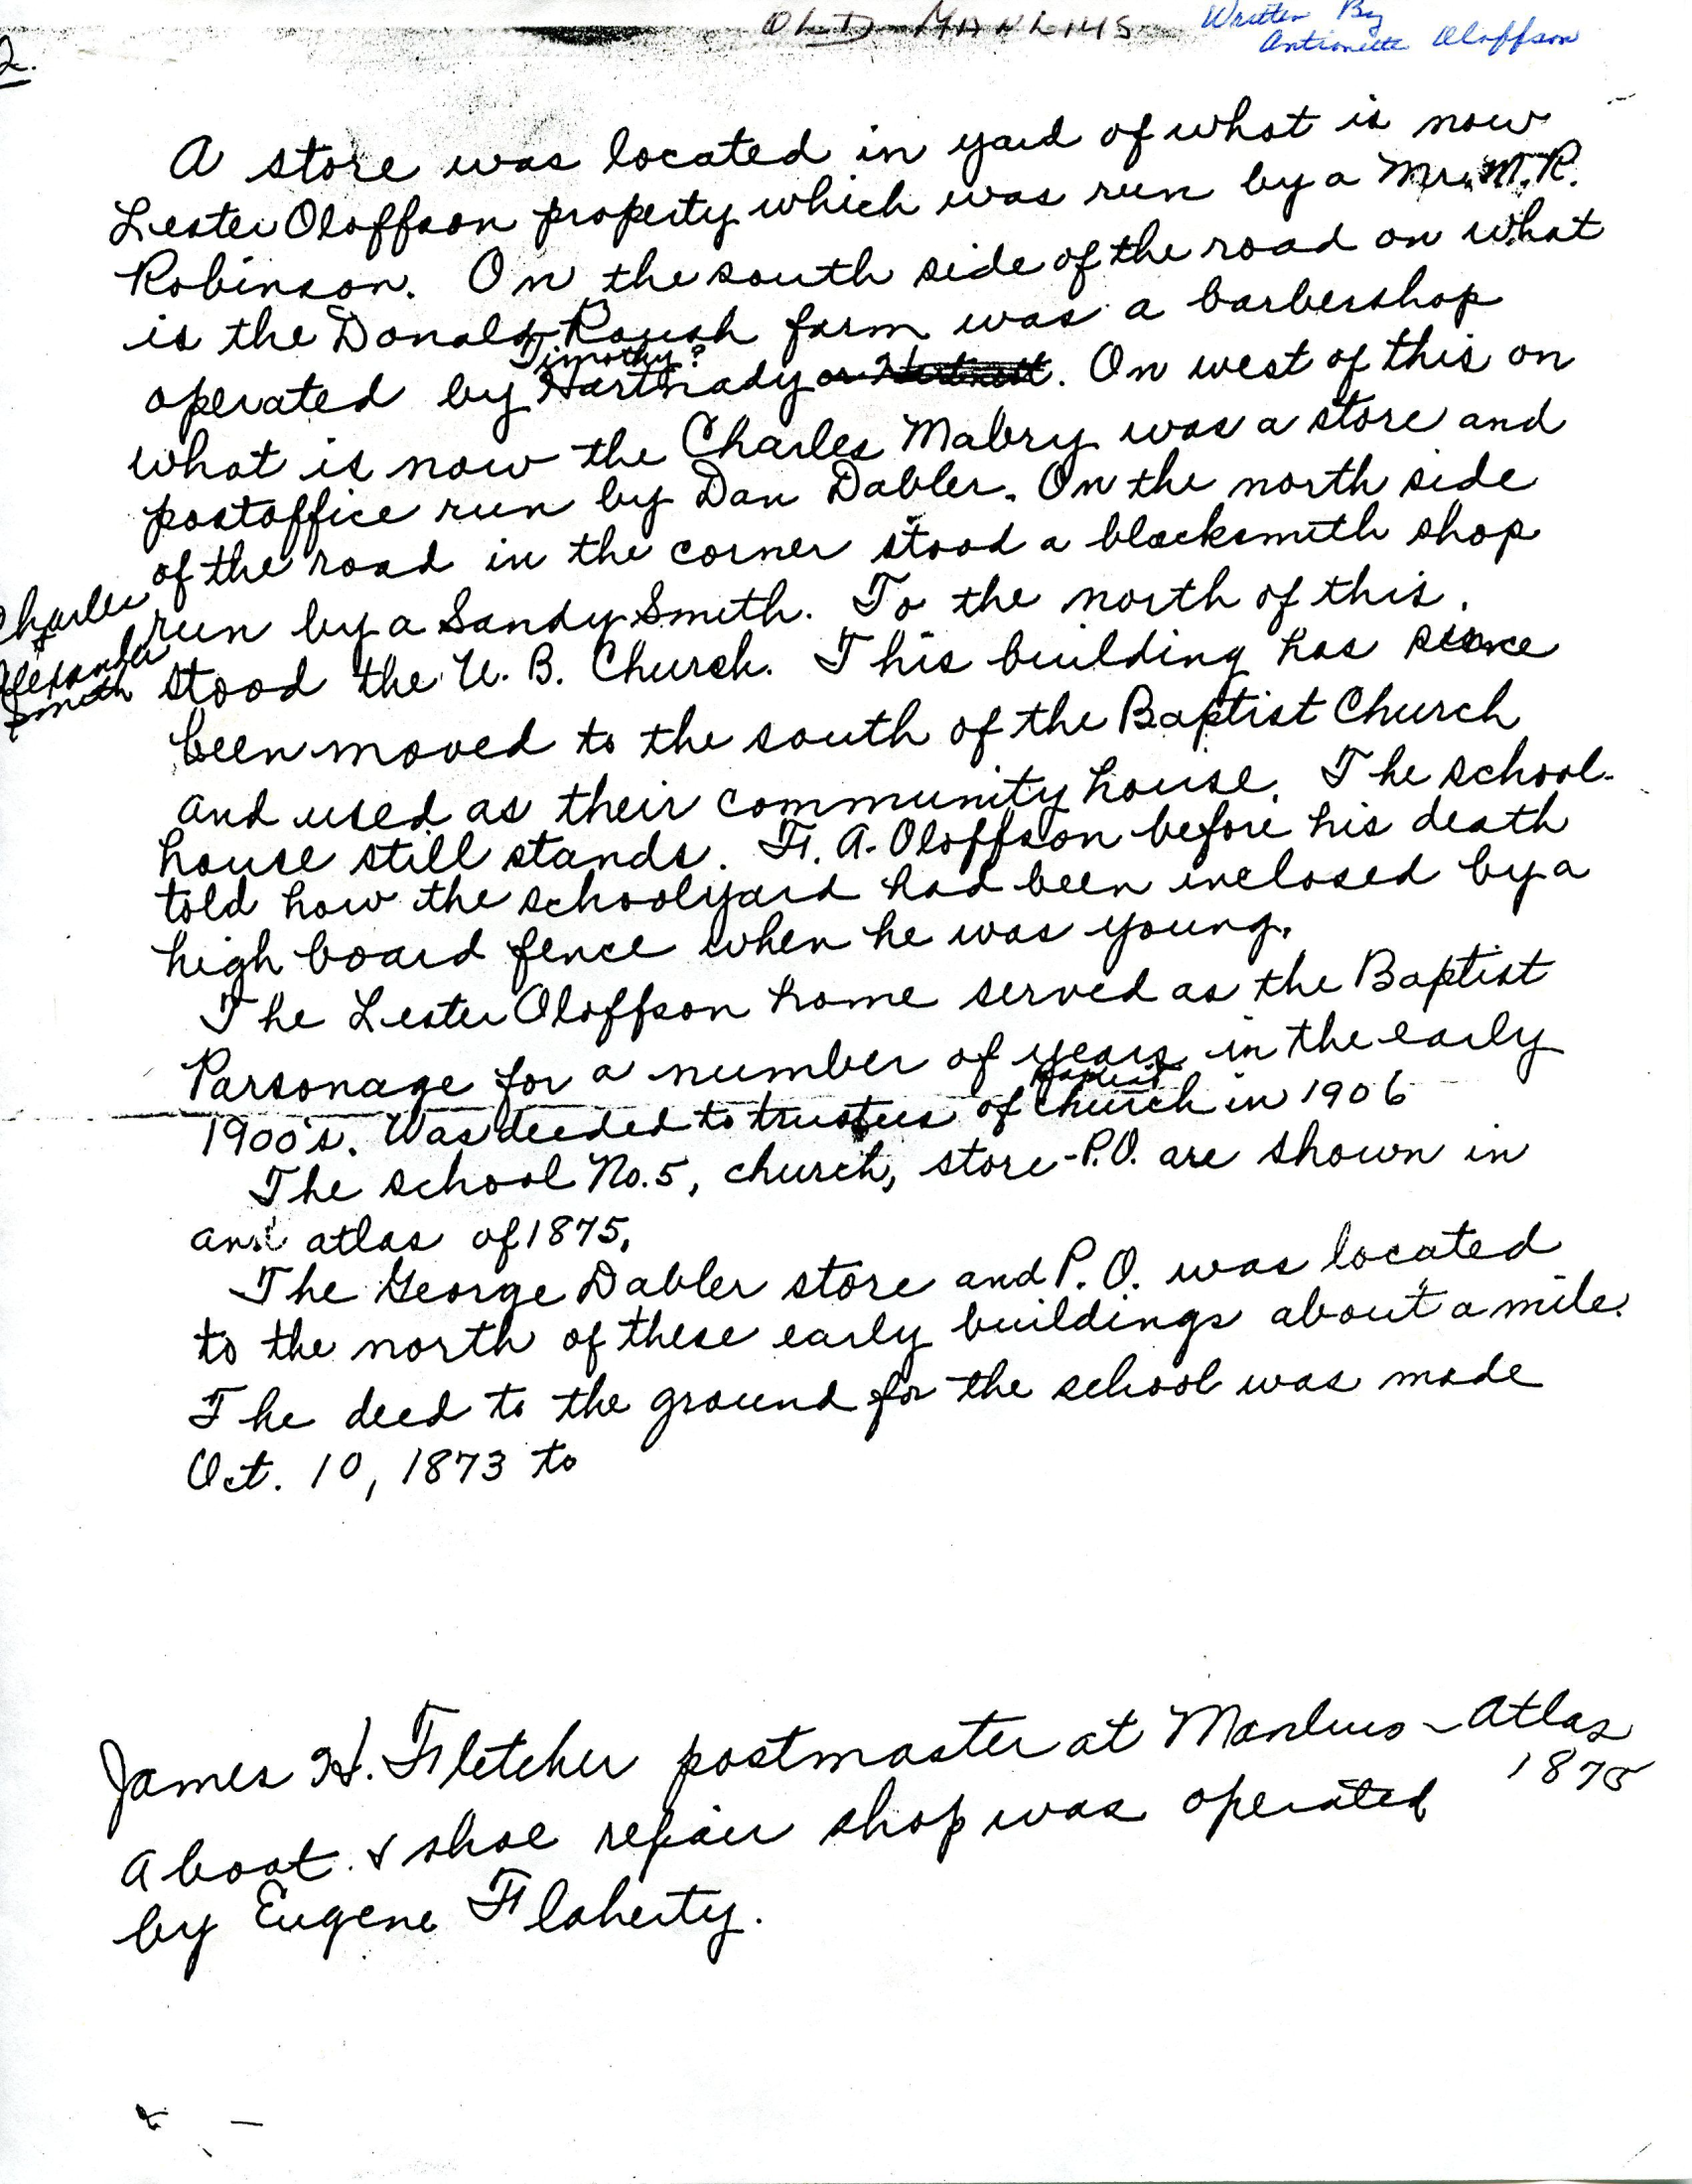 OLD MANLIUS
Written By
Antionette Oloffson
2.
A store was located in yard of what is now
Lester Oloffson property which was run by a Mr. M.R.
Robinson. On the south side of the road on what
is the Donald Roush farm was a barbershop
Timothy?
operated by Hartnady or . On west of this on
what is now the Charles Mabry was a store and
postoffice run by Dan Dabler. On the north side
of the road in the corner stood a blacksmith shop
Charles
&
Alexander
Smith
run by a Sandy Smith. To the north of this
stood the U. B. Church. This building has since
been moved to the south of the Baptist Church
and used as their community house. The school-
house still stands. F. A. Oloffson before his death
told how the schoolyard had been inclosed by a
high board fence when he was young.
The Lester Oloffson home served as the Baptist
Parsonage for a number of years in the early
Baptist
1900's. Was deeded to trustees of church in 1906
The school No. 5, church, store-P.O. are shown in
an atlas of 1875.
The George Dabler store and P.O. was located
to the north of these early buildings about a mile.
The deed to the ground for the school was made
Oct. 10, 1873 to
James H. Fletcher postmaster at Manlius - Atlas
1875
A boot & shoe repair shop was operated
by Eugene Flaherty.